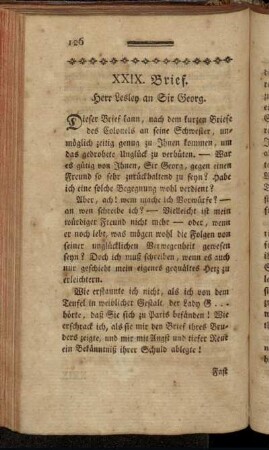 106
XXIX. Brief.
Herr Lesley an Sir Georg.
Dieser Brief kann, nach dem kurzen Briefe
des Colonels an seine Schwester, un-
möglich zeitig genug zu Ihnen kommen, um
das gedrohete Unglück zu verhüten. — War
es gütig von Ihnen, Sir Georg, gegen einen
Freund so sehr zurückhaltend zu seyn? Habe
ich eine solche Begegnung wohl verdient?
Aber, ach! wem mache ich Vorwürfe? —
an wen schreibe ich? — Vielleicht ist mein
würdiger Freund nicht mehr — oder, wenn
er noch lebt, was mögen wohl die Folgen von
seiner unglücklichen Verwegenheit gewesen
seyn? Doch ich muß schreiben, wenn es auch
nur geschieht mein eigenes gequältes Herz zu
erleichtern.
Wie erstaunte ich nicht, als ich von dem
Teufel in weiblicher Gestalt, der Lady G . . .
hörte, daß Sie sich zu Paris befänden! Wie
erschrack ich, als sie mir den Brief ihres Bru-
ders zeigte, und mir mit Angst und tiefer Reue
ein Bekänntniß ihrer Schuld ablegte!
Fast